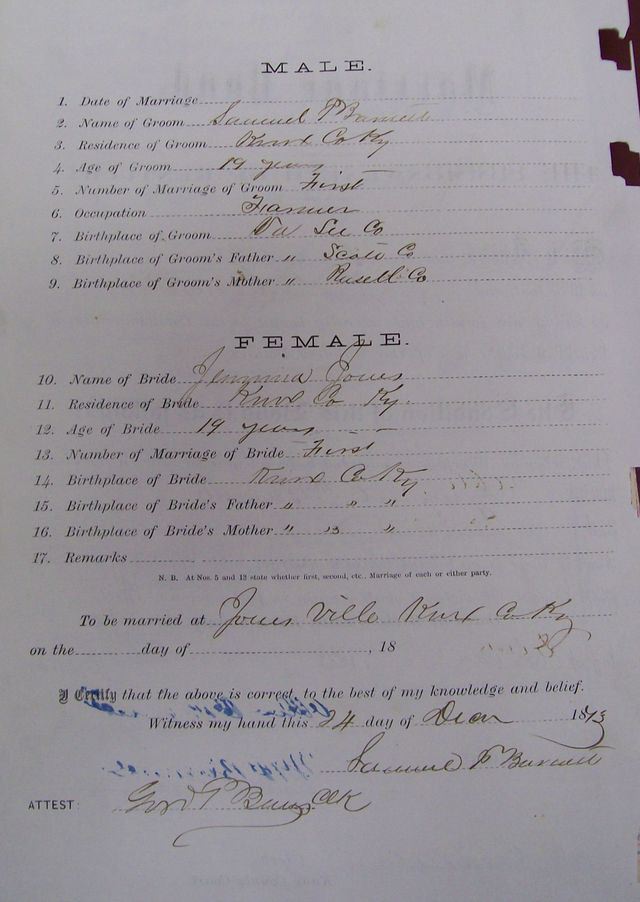 MALE.
1. Date of Marriage
2. Name of Groom Samuel F Barnett
3. Residence of Groom Knox Co Ky
4. Age of Groom 19 years
5. Number of Marriage of Groom First
6. Occupation Farmer
7. Birthplace of Groom Va Lee Co
8. Birthplace of Groom's Father " Scott Co
9. Birthplace of Groom's Mother " Rusell Co
FEMALE.
10. Name of Bride Jemima Jones
11. Residence of Bride Knox Co Ky.
12. Age of Bride 19 years
13. Number of Marriage of Bride First
14. Birthplace of Bride Knox Co Ky.
15. Birthplace of Bride's Father " " "
16. Birthplace of Bride's Mother " " "
17. Remarks
N. B. At Nos. 5 and 13 state whether first, second, etc., Marriage of each or either party.
To be married at Jones Ville Knox Co Ky
on the day of , 18
I Certify that the above is correct, to the best of my knowledge and belief.
Witness my hand this 24 day of 1873
Samuel F Barnett
ATTEST: Clk